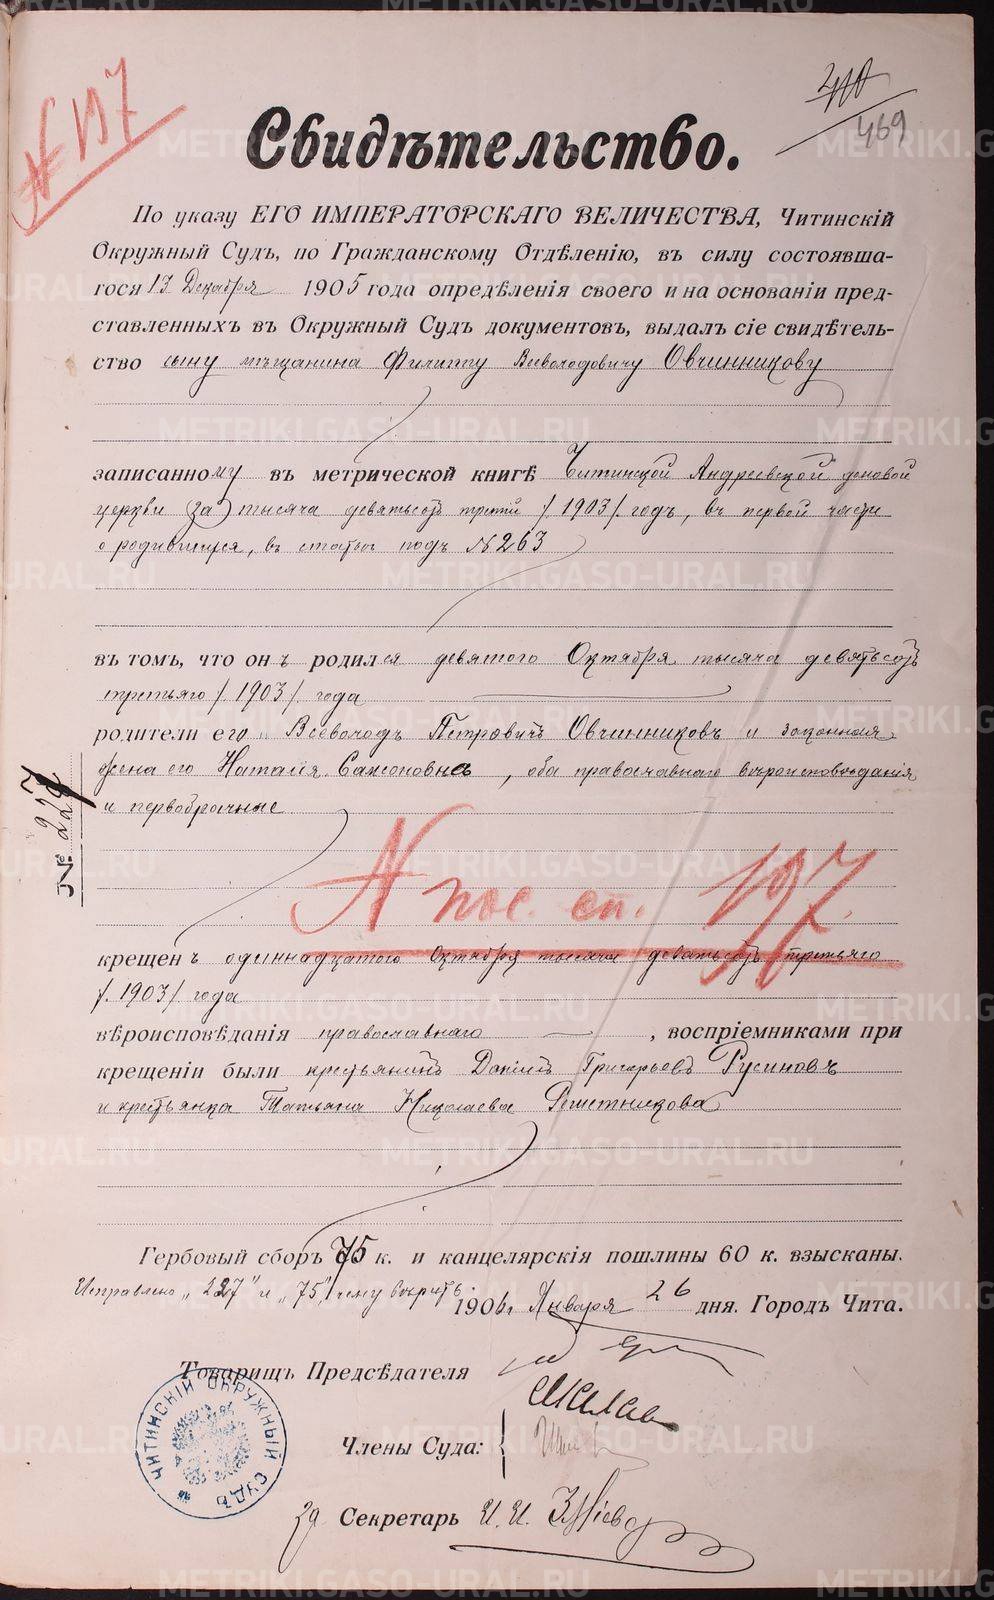 № 197
410
469
Свидѣтельство.
По указу ЕГО ИМПЕРАТОРСКАГО ВЕЛИЧЕСТВА, Читинскій
Окружный Судъ, по Гражданскому Отдѣленію, въ силу состоявша-
гося 13 Декабря 1905 года опредѣленія своего и на основаніи пред-
ставленныхъ въ Окружный Судъ документовъ, выдалъ сіе свидѣтель-
ство сыну мѣщанина Филиппу Всеволодовичу Овчинникову
записанному въ метрической книгѣ Читинской Андреевской домовой
церкви (за) тысяча девятьсотъ третій /1903/ годъ, въ первой части
о родившихся, въ статьѣ подъ №263
въ томъ, что онъ родился девятого Октября тысяча девятьсотъ
третьяго /1903/ года
родители его: Всеволодъ Петровичъ Овчинниковъ и законная
жена его Наталія Самсоновна, оба православнаго вѣроисповѣданія
и первобрачные
№ 227
№ пос. сп. 197.
крещенъ одиннадцатого Октября тысяча девятьсотъ третьяго
/1903/ года
вѣроисповѣданія православнаго, воспріемниками при
крещеніи были крестьянинъ Даніилъ Григорьевъ Русиновъ
и крестьянка Татьяна Николаева Решетникова
Гербовый сборъ 75 к. и канцелярскія пошлины 60 к. взысканы.
Исправлено „227" и „75", чему вѣрить.
1906 г. Января 26 дня. Городъ Чита.
Товарищъ Предсѣдателя
Члены Суда:
За Секретарь И. И.
ЧИТИНСКІЙ ОКРУЖНЫЙ СУДЪ
METRIKI.GASO-URAL.RU